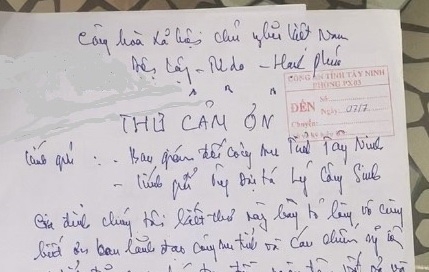 Cộng hoà xã hội chủ nghĩa Việt Nam
Độc lập - Tự do - Hạnh Phúc
CÔNG AN TỈNH TÂY NINH
PHÒNG PX03
ĐẾN
Số
Ngày: 07/7
Chuyển:
THƯ CẢM ƠN
Kính gửi: - Ban giám đốc công an Tỉnh Tây Ninh
- Kính gửi ông Đại tá Lý Công Sinh
Gia đình chúng tôi viết thư này bày tỏ lòng vô cùng
biết ơn ban lãnh đạo công an tỉnh và các chiến sỹ